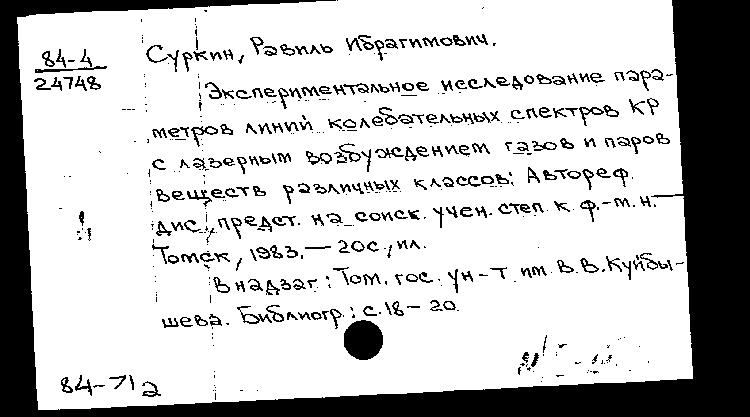 84-4
24748
Суркин, Равиль Ибрагимович.
Экспериментальное исследование пара-
метров линий колебательных спектров КР
с лазерным возбуждением газов и паров
веществ различных классов: Автореф.
дис., предст. на соиск. учен. степ. к. ф.-м. н. —
Томск, 1983. — 20с., ил.
В надзаг: Том. гос. ун-т им В.В. Куйбы-
шева. Библиогр.: с. 18-20.
84-71а